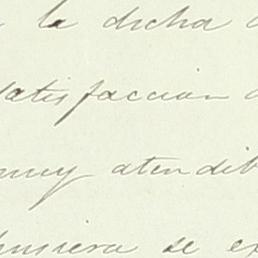 la dicha
satisfaccion
muy atendib
pusiera se ex